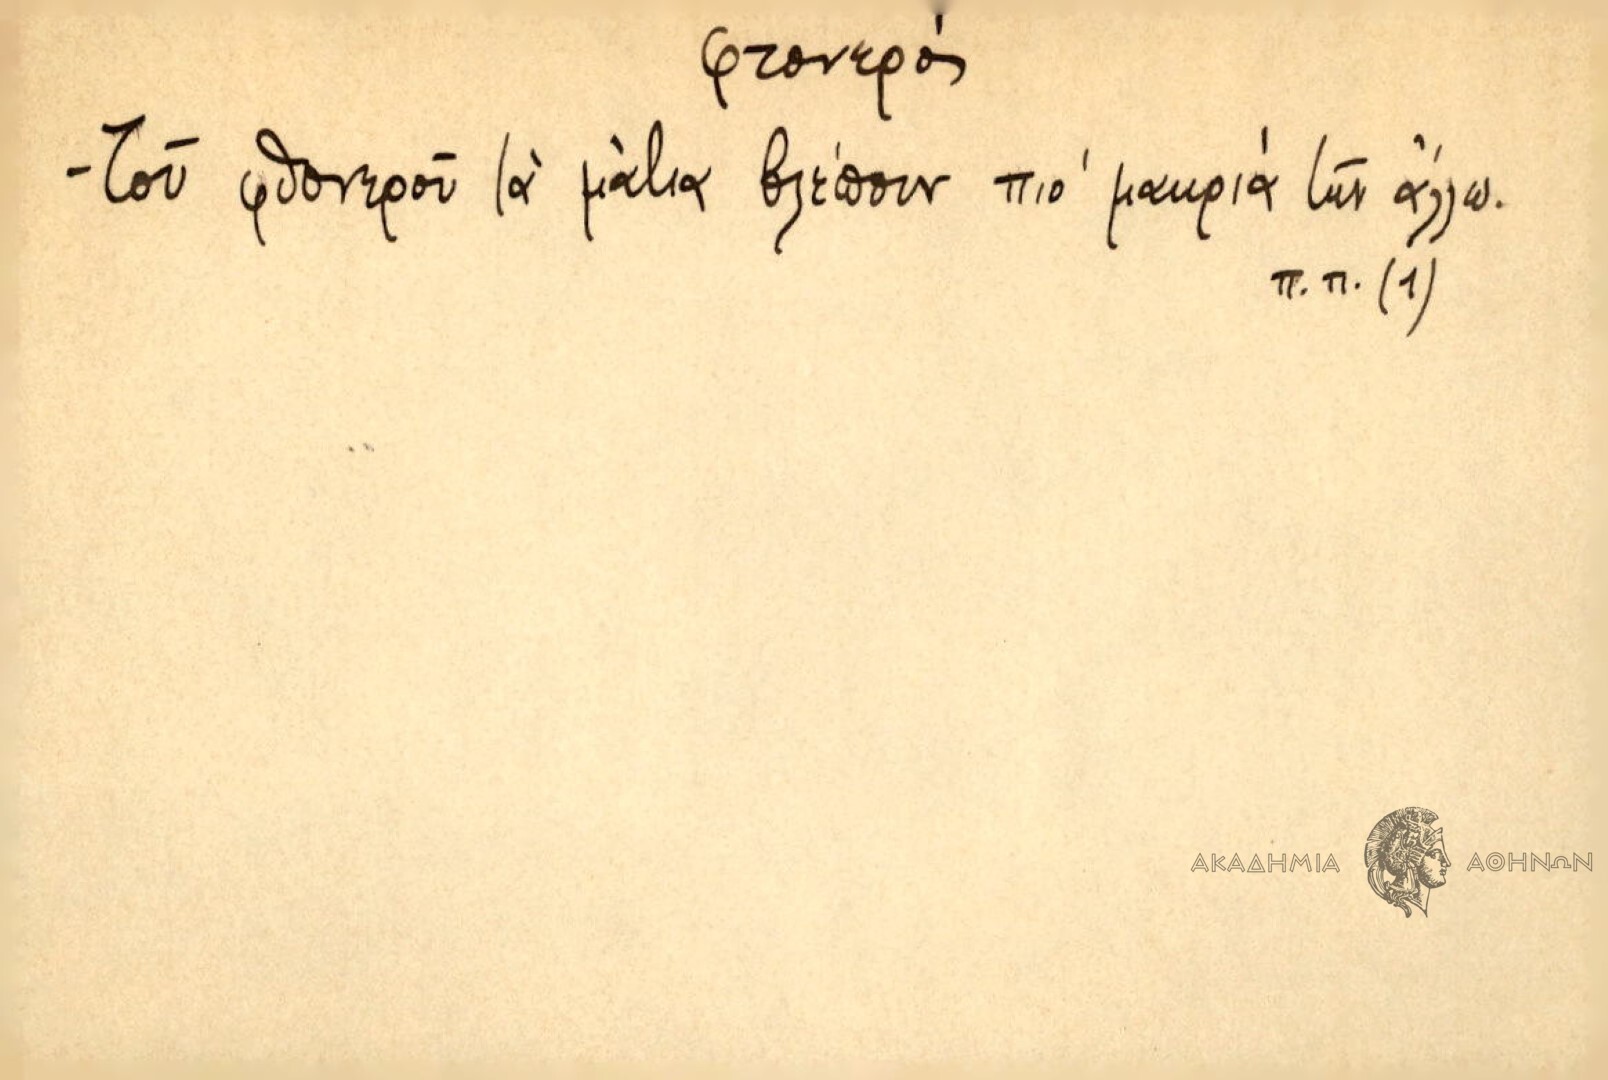 φτονερός
-Τοῦ φθονεροῦ τὰ μὰτια βλέπουν πιό μακριά τῶν ἄλλω.
π.π. (1)
ΑΚΑΔΗΜΙΑ ΑΘΗΝΩΝ